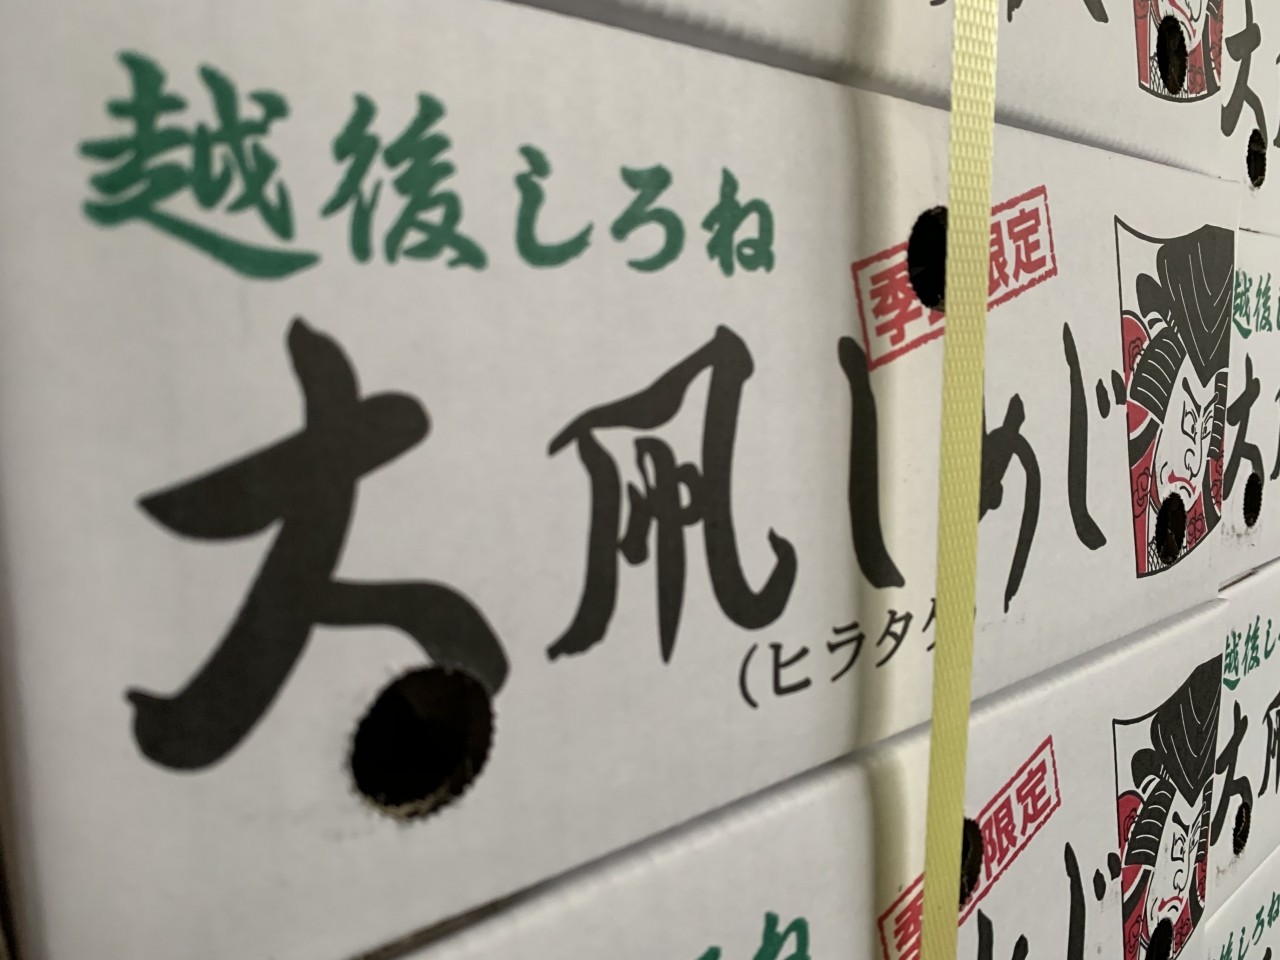 越後しろね
季 限定
大凧しめじ
(ヒラタケ
大
越後し
大
限定
越後し
じ
大凧
季
しろね
ね